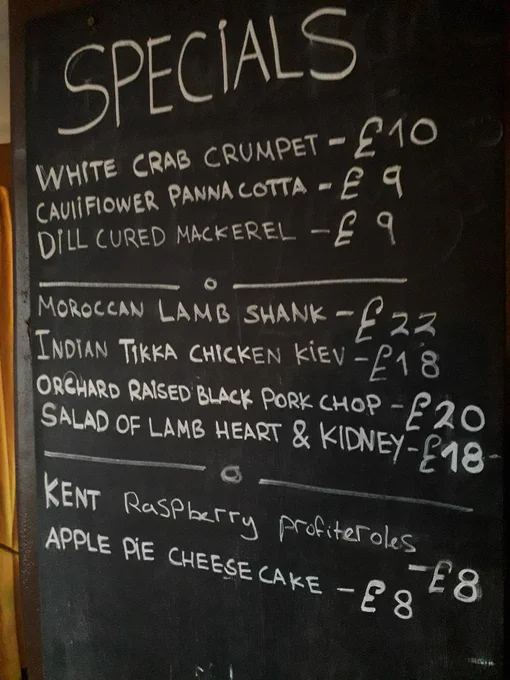 SPECIALS
WHITE CRAB CRUMPET - £10
CAULIFLOWER PANNA COTTA - £9
DILL CURED MACKEREL - £9
MOROCCAN LAMB SHANK - £22
INDIAN TIKKA CHICKEN KIEV - £18
ORCHARD RAISED BLACK PORK CHOP - £20
SALAD OF LAMB HEART & KIDNEY - £18-
KENT Raspberry profiteroles
- £8
APPLE PIE CHEESECAKE - £8